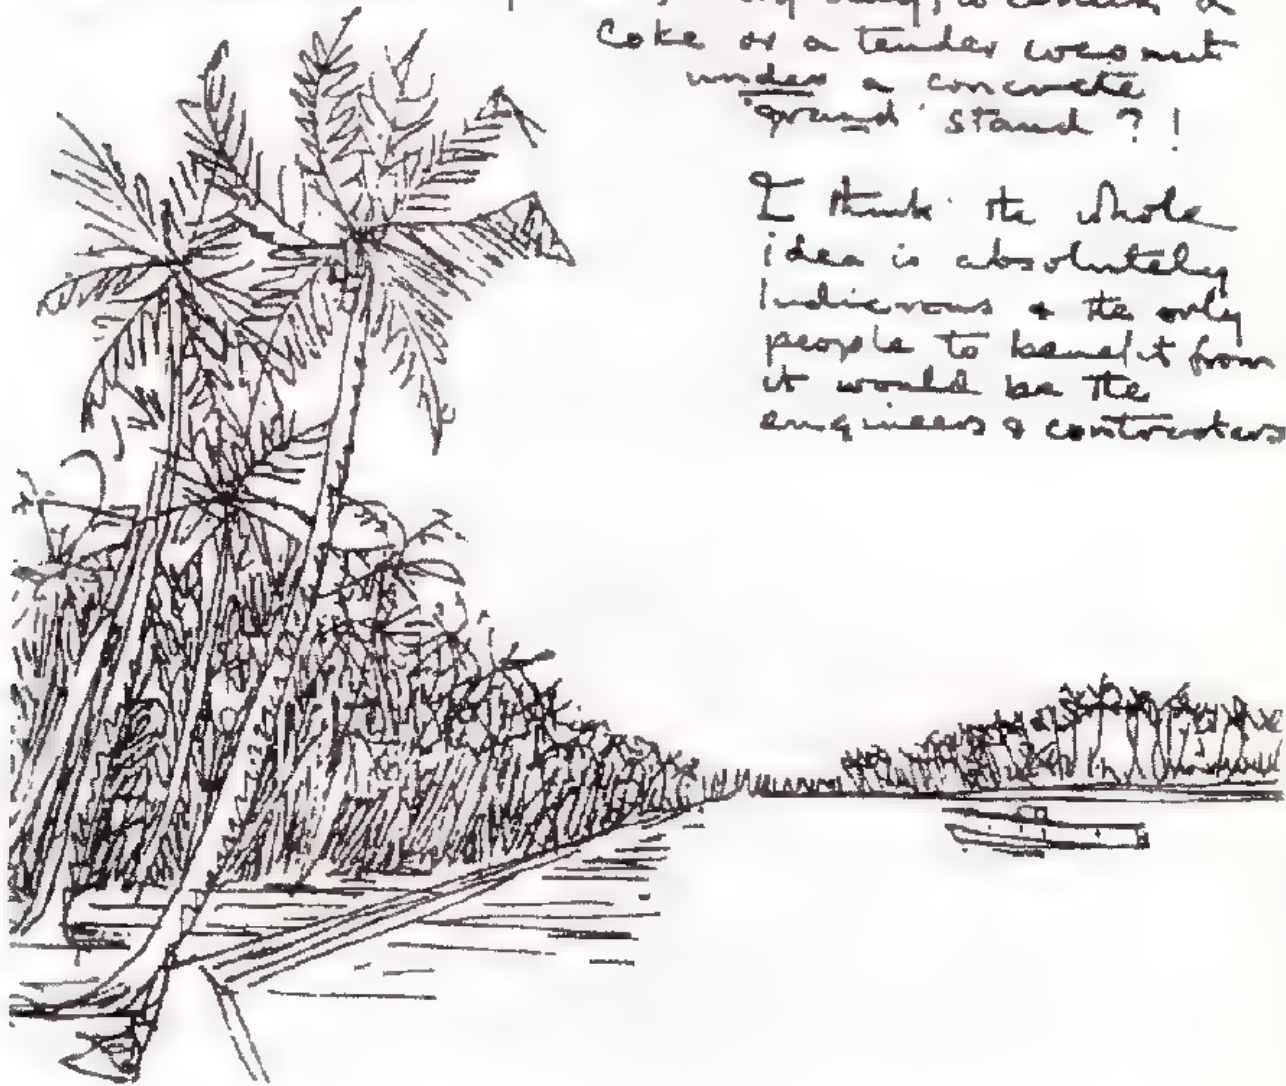 Coke or a tender coconut
under a concrete
'grand' stand?!
I think the whole
idea is absolutely
ludicrous & the only
people to benefit from
it would be the
engineers & contractors